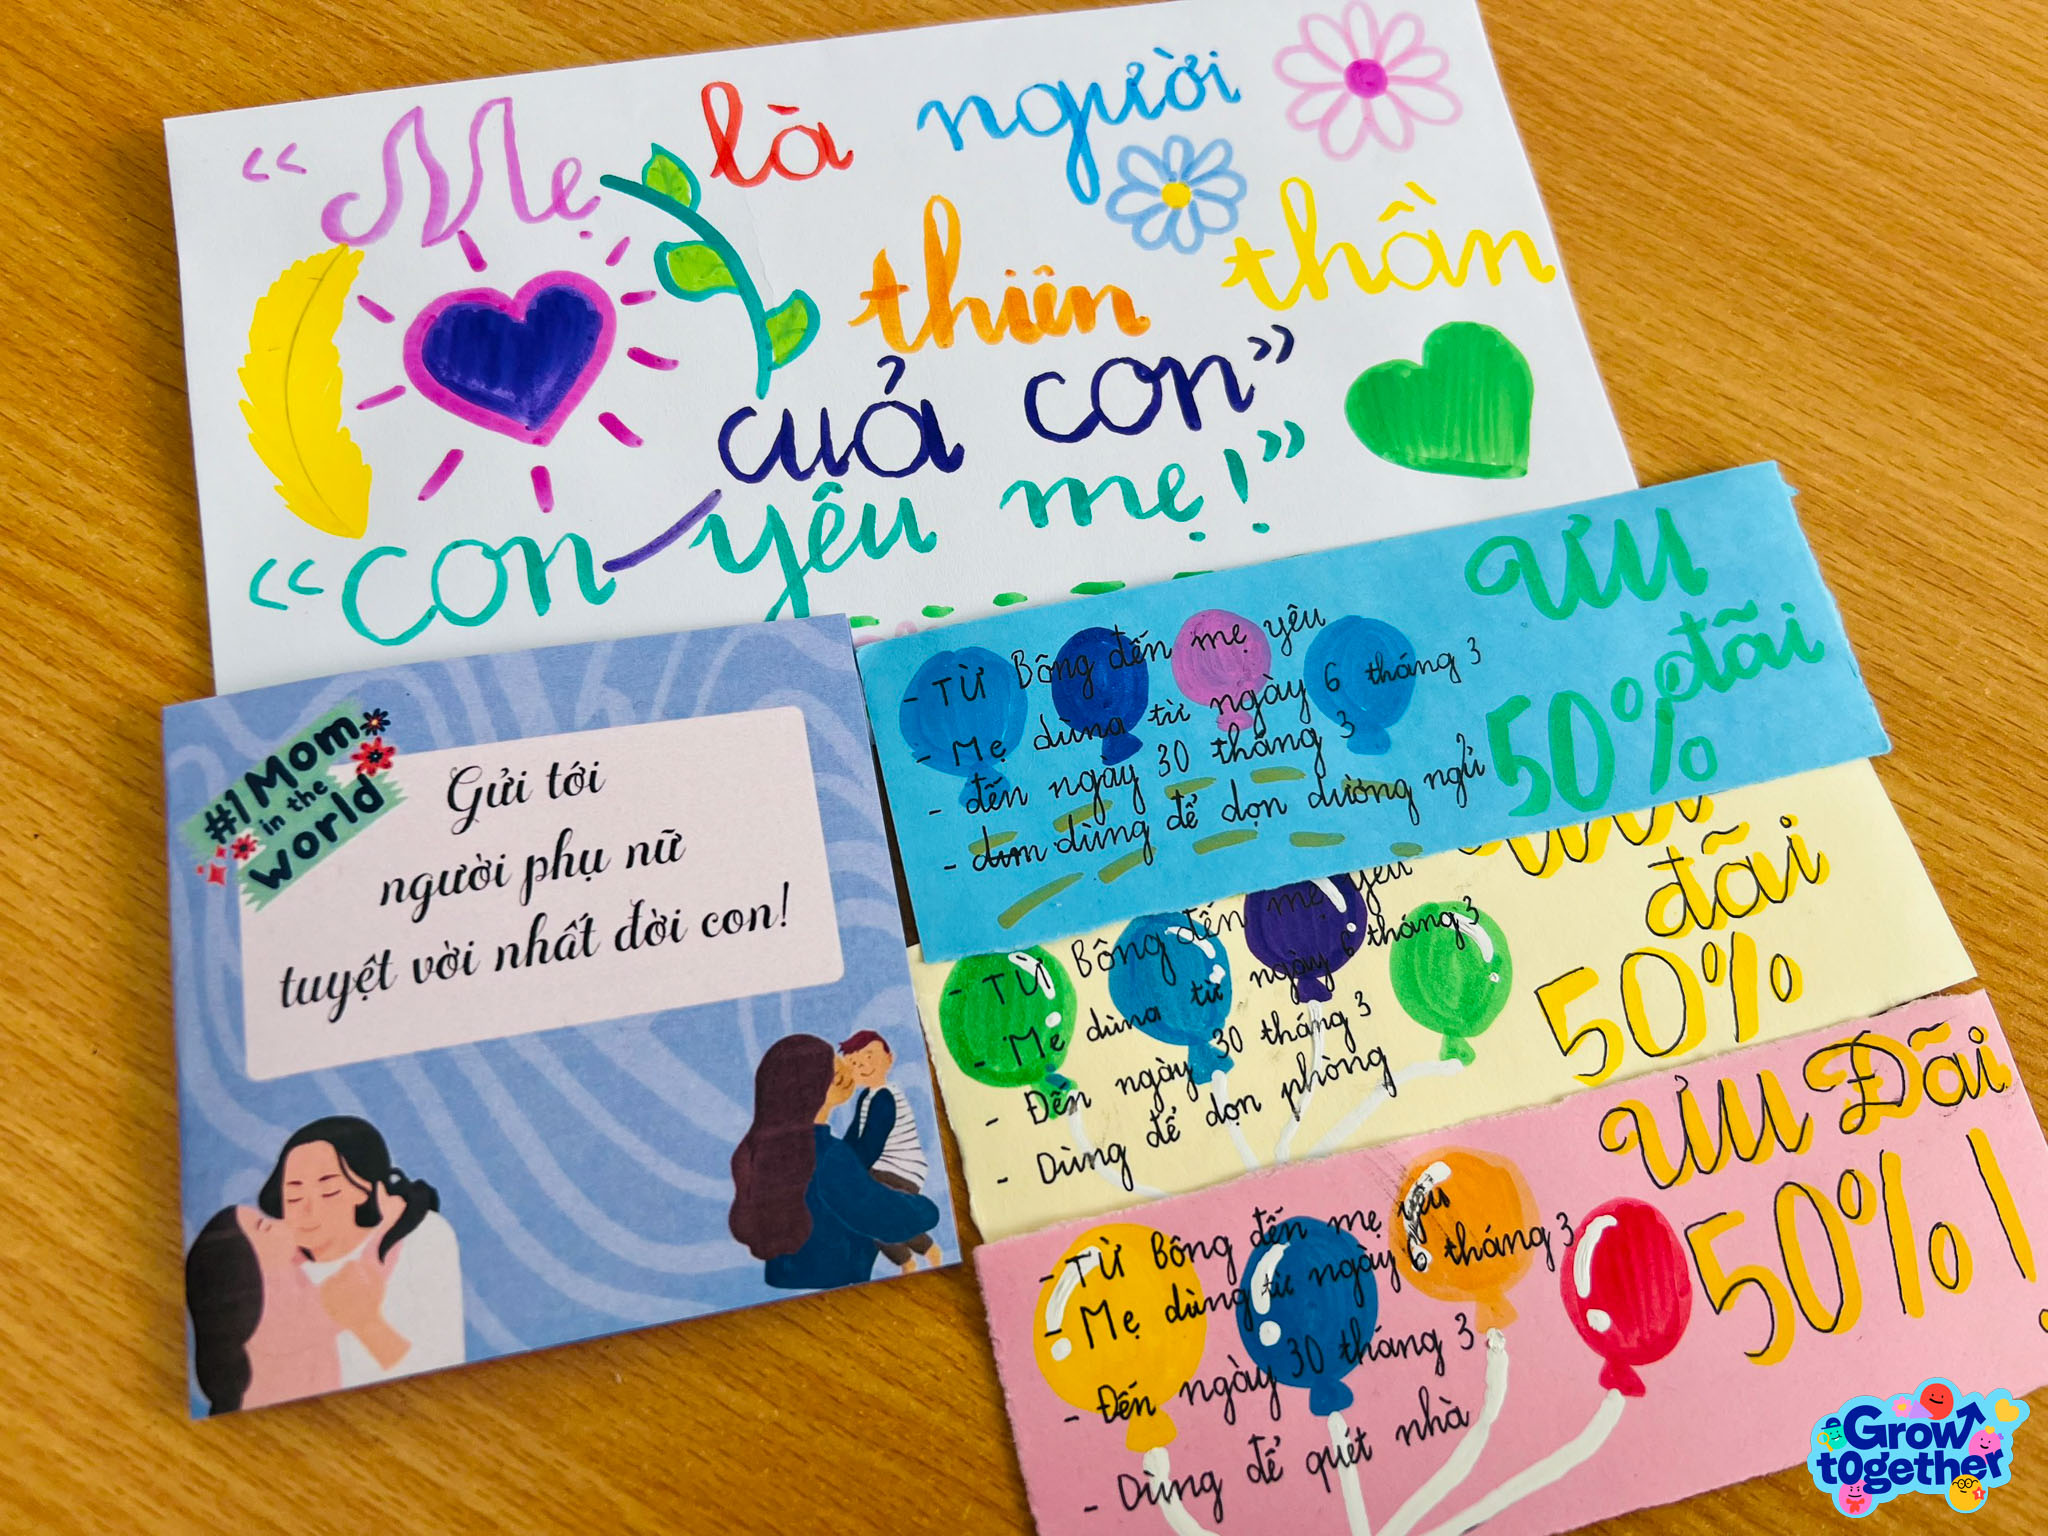 “Mẹ là người
thiên thần
cuả con”
“Con yêu mẹ!”
#1 Mom
in the
world
Gửi tới
người phụ nữ
tuyệt vời nhất đời con!
ưu
đãi
50%
- Từ Bông đến mẹ yêu
- Mẹ dùng từ ngày 6 tháng 3
- đến ngày 30 tháng 3
- dùng để dọn dường ngủ
đãi
50%
- Từ Bông đến mẹ yêu
- Mẹ dùng từ ngày 6 tháng 3
- Đến ngày 30 tháng 3
- Dùng để dọn phòng
ưu Đãi
50%!
- Từ Bông đến mẹ yêu
- Mẹ dùng từ ngày 6 tháng 3
- Đến ngày 30 tháng 3
- Dùng để quét nhà
Grow
together